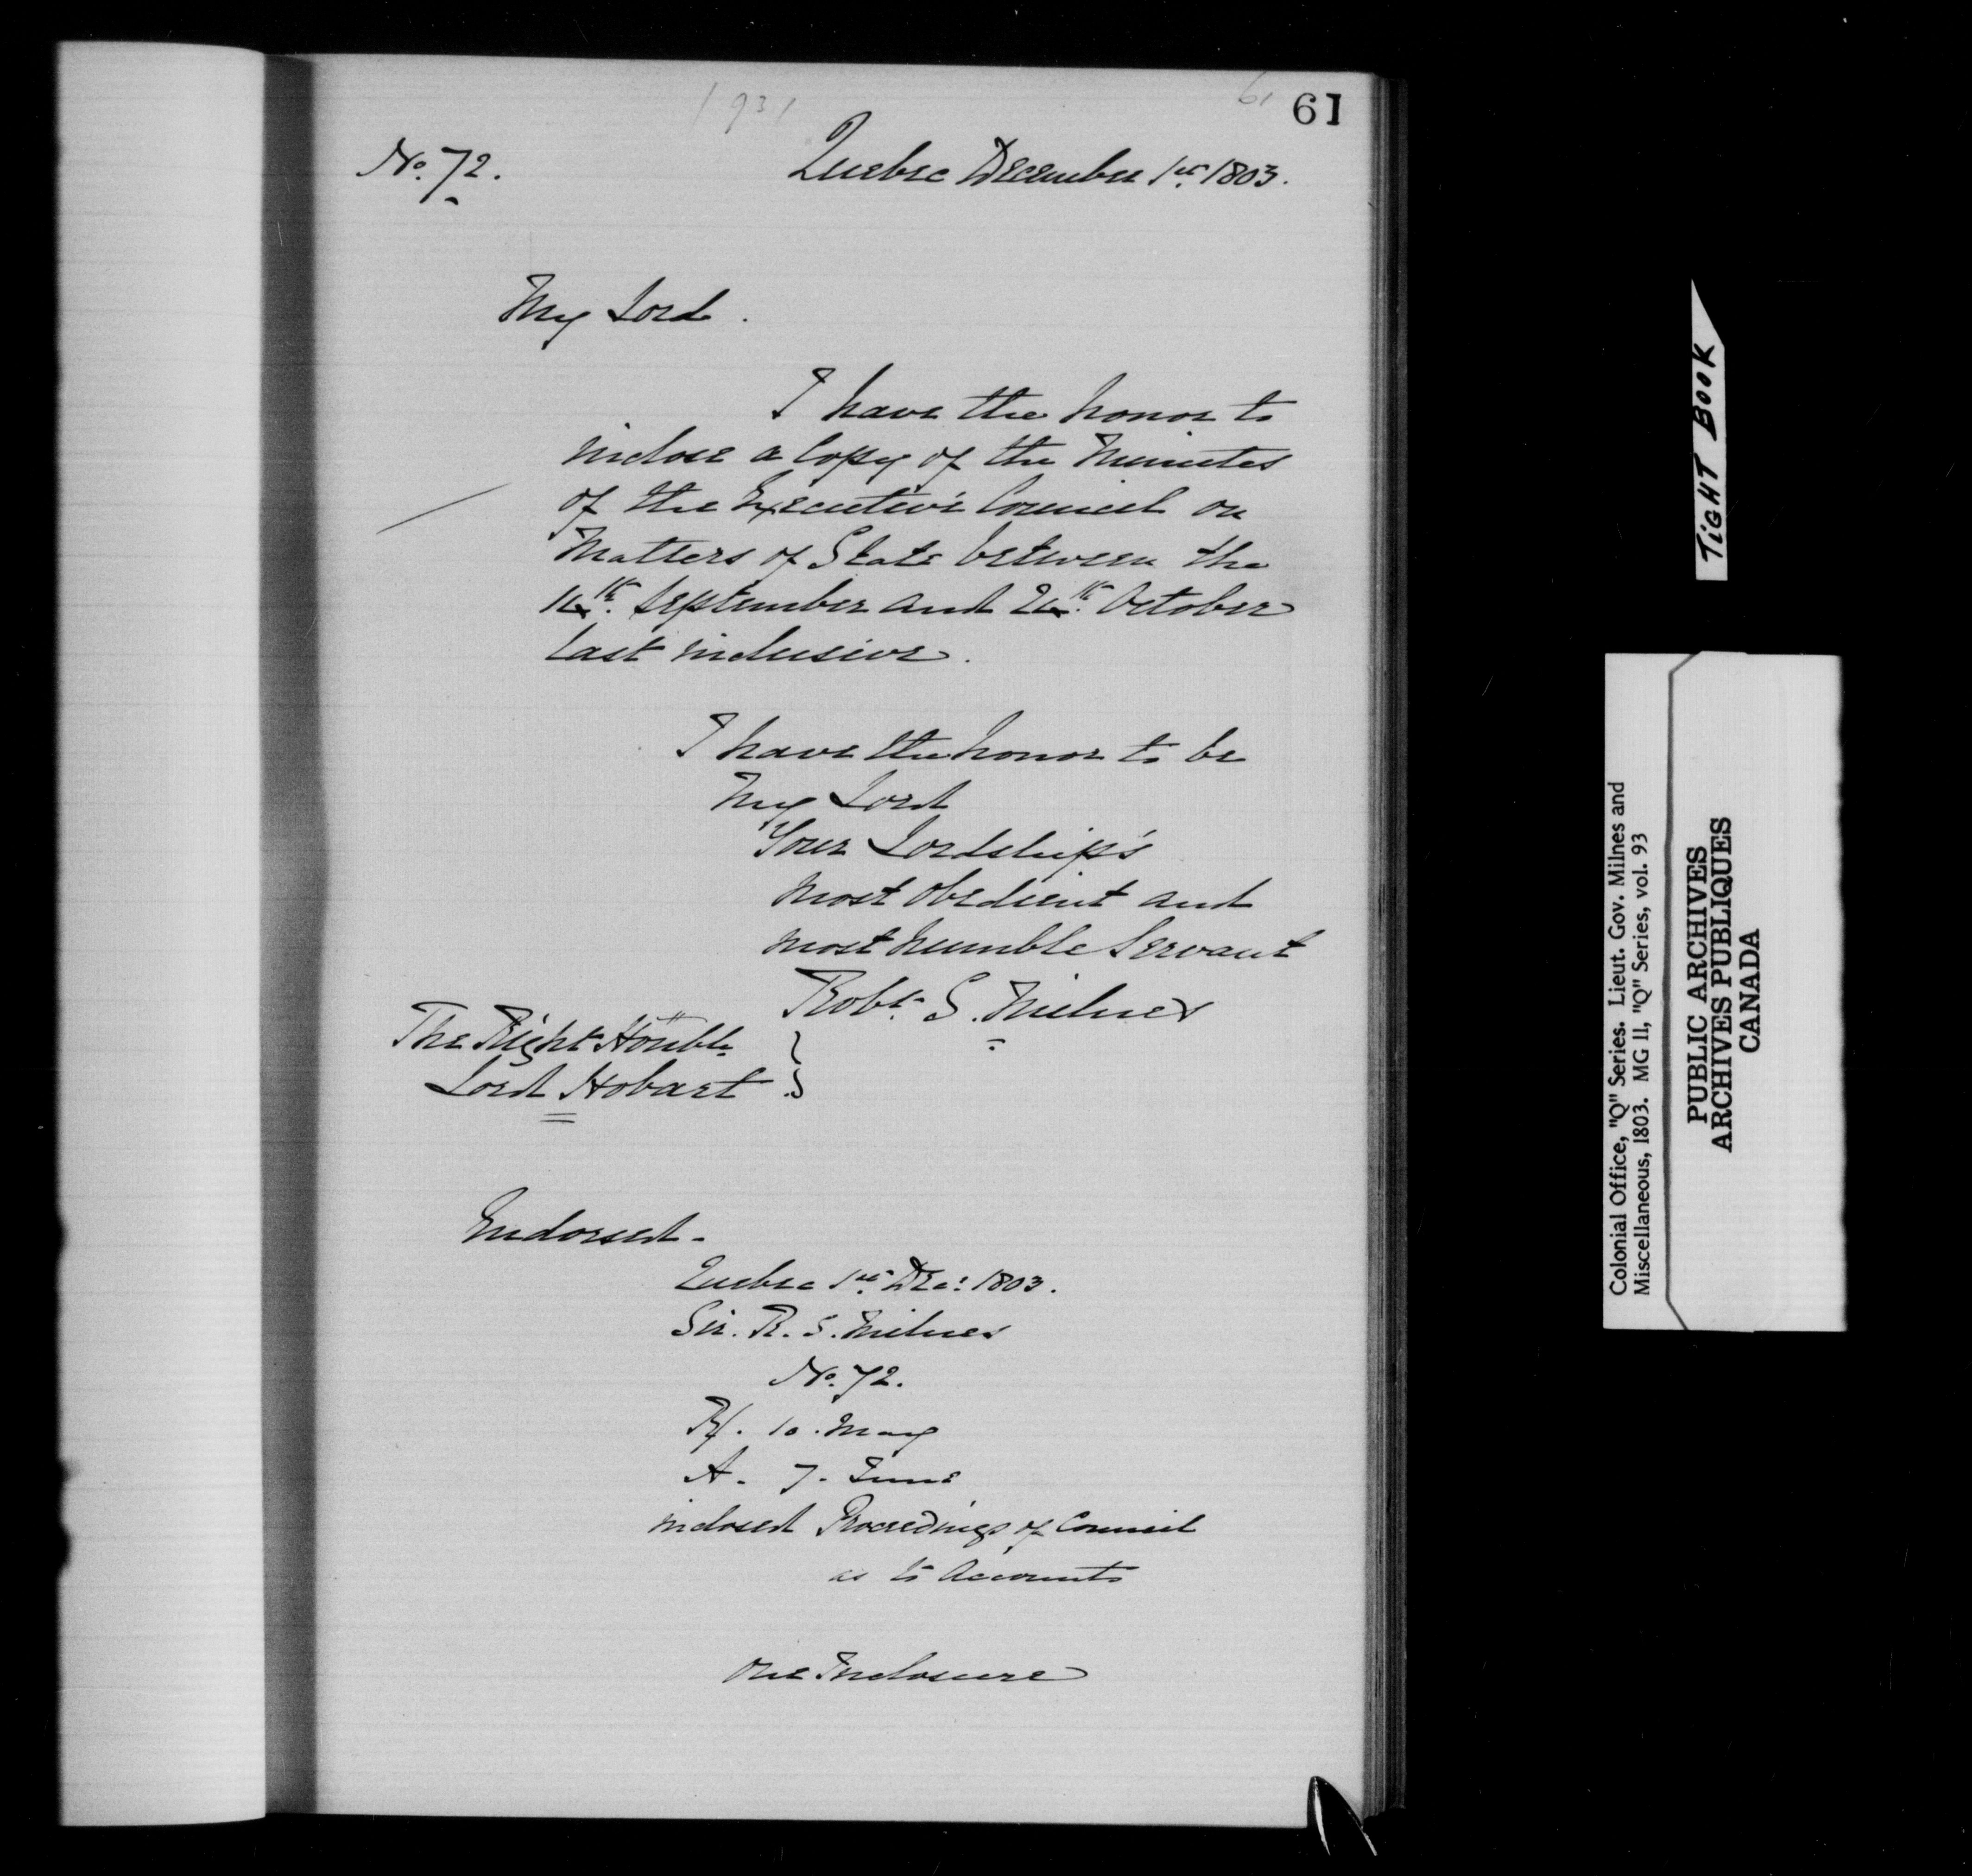 61
61
No. 72.
Quebec December 1st 1803.
My Lord.
I have the honor to
inclose a Copy of the Minutes
of the Executive Council on
Matters of State between the
16th September and 26th October
last inclusive.
I have the honor to be
My Lord
Your Lordship's
most obedient and
most humble Servant
Robt. S. Milnes
The Right Honble
Lord Hobart
Endorsed -
Quebec 1st Dec: 1803.
Sir. R. S. Milnes
No. 72.
R/. 10. May
A. 7. June
inclosed Proceedings of Council
as to Accounts
One Inclosure
TiGHT BOOK
Colonial Office, "Q" Series. Lieut. Gov. Milnes and
Miscellaneous, 1803. MG 11, "Q" Series, vol. 93
PUBLIC ARCHIVES
ARCHIVES PUBLIQUES
CANADA